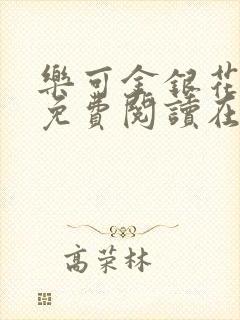 樂可金銀花
免費閱讀在
高荣林